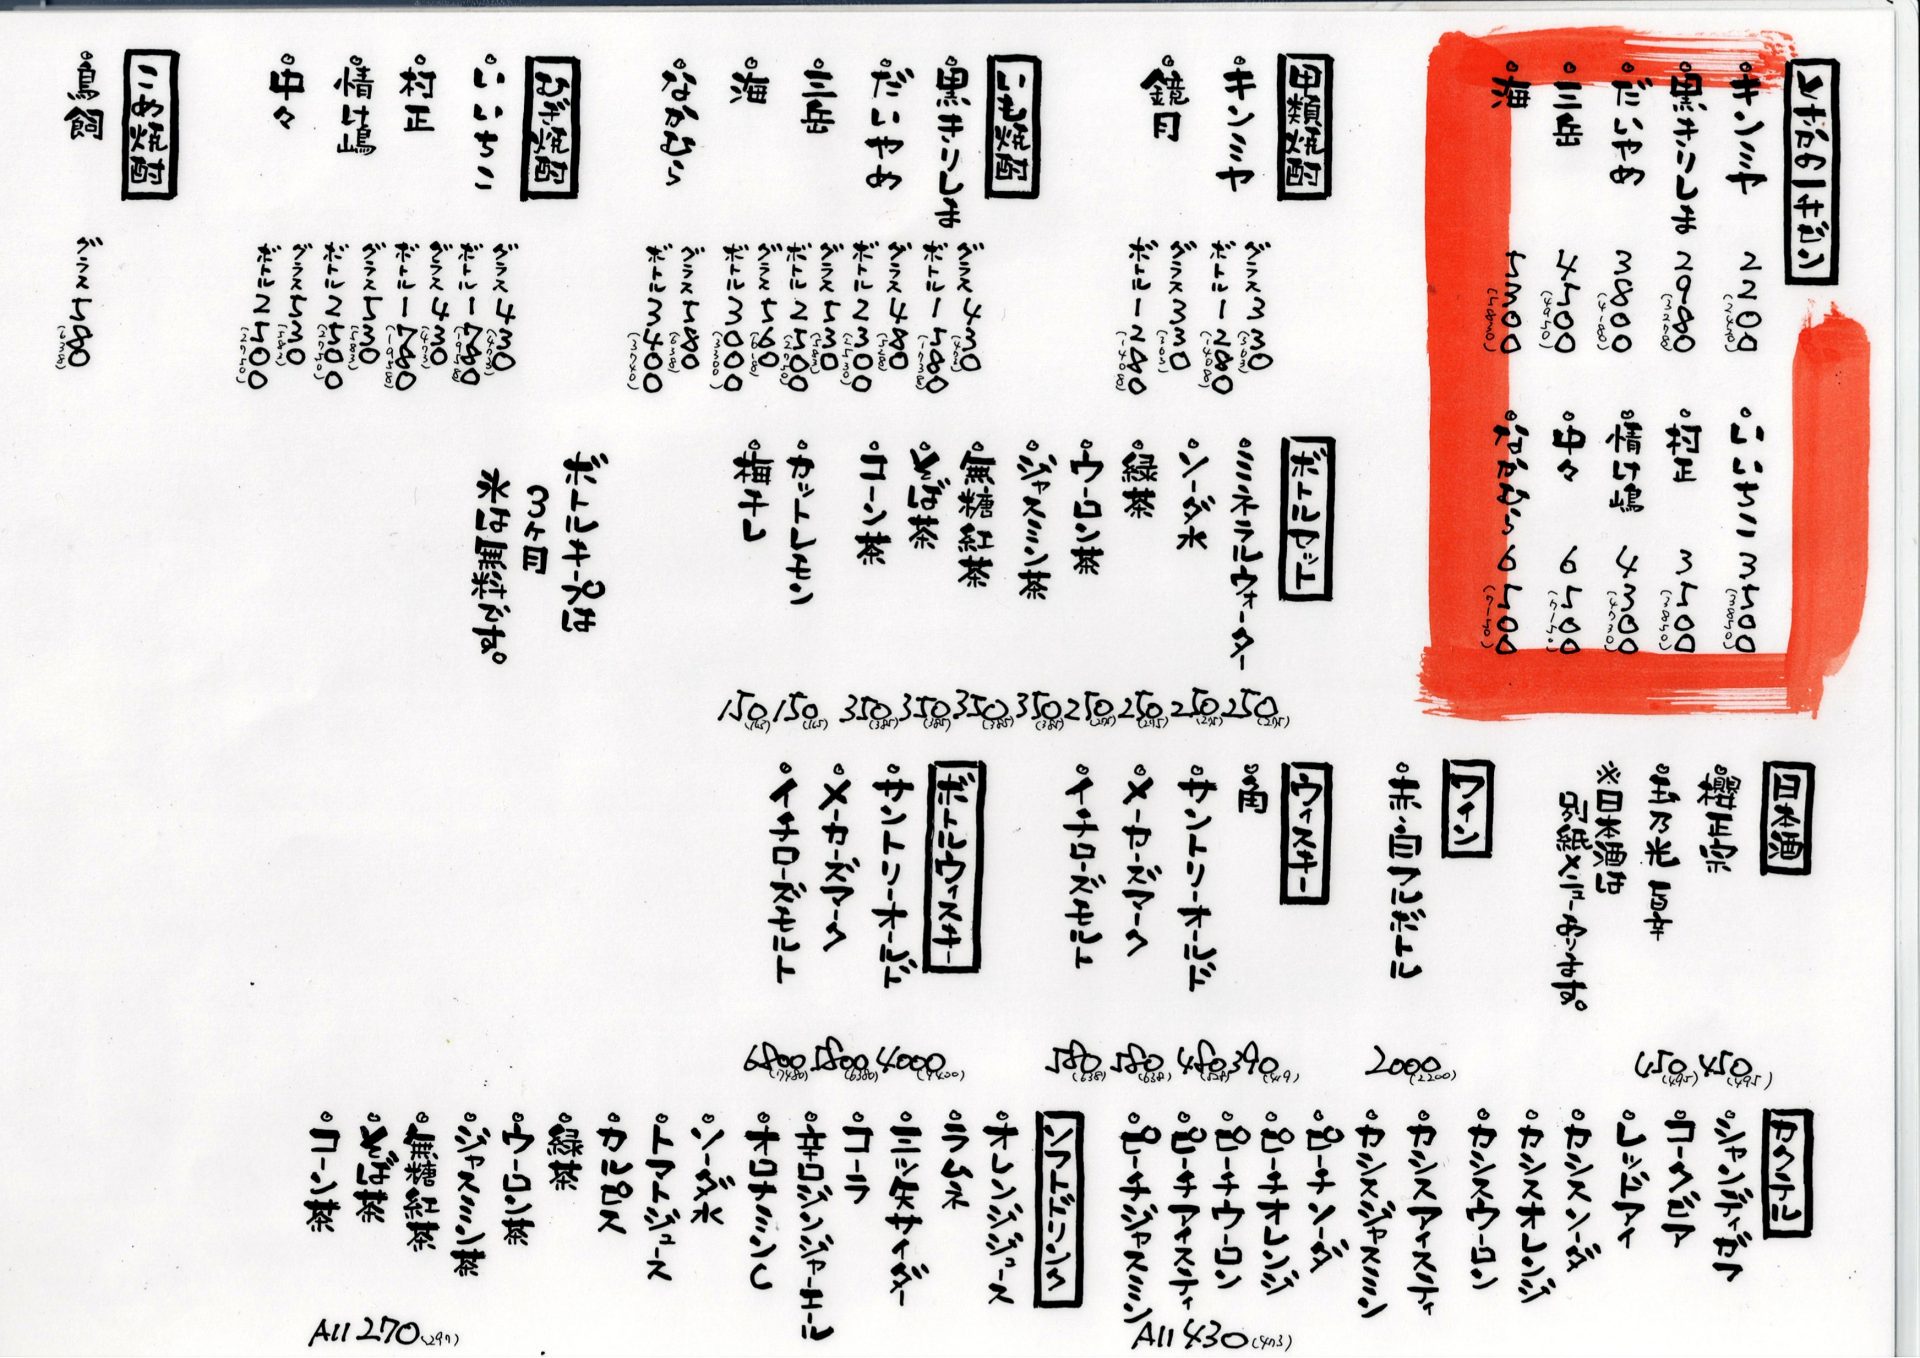 キンミヤ 2200 (2420)
黒きりしま 2980
だいやめ 3800 (4180)
三岳 4500 (4950)
海 5300 (5830)
いいちこ 3500 (3850)
村正 3500 (3850)
情け嶋 4300 (4730)
中々 6500 (7150)
なかむら 6500 (7150)
甲類焼酎
キンミヤ グラス330 (363)
ボトル1280 (1408)
鏡月 グラス330 (363)
ボトル1280 (1408)
いも焼酎
黒きりしま グラス430 (473)
ボトル1580 (1738)
だいやめ グラス480 (528)
ボトル2300 (2530)
三岳 グラス530 (583)
ボトル2500 (2750)
海 グラス560 (616)
ボトル3000 (3300)
なかむら グラス580 (638)
ボトル3400 (3740)
むぎ焼酎
いいちこ グラス430 (473)
ボトル1780 (1958)
村正 グラス430 (473)
ボトル1780 (1958)
情け嶋 グラス530 (583)
ボトル2500 (2750)
中々 グラス530 (583)
ボトル2500 (2750)
こめ焼酎
鳥飼 グラス580 (638)
ボトルセット
ミネラルウォーター 250 (275)
ソーダ水 250 (275)
緑茶 250 (275)
ウーロン茶 250 (275)
ジャスミン茶 350 (385)
無糖紅茶 350 (385)
そば茶 350 (385)
コーン茶 350 (385)
カットレモン 150 (165)
梅干し 150 (165)
ボトルキープは
3ヶ月
氷は無料です。
日本酒
櫻正宗 450 (495)
450 (495)
※日本酒は
別紙メニューあります。
ワイン
赤・白フルボトル 2000 (2200)
ウィスキー
角 390 (429)
サントリーオールド 480 (528)
メーカーズマーク 580 (638)
イチローズモルト 580 (638)
ボトルウィスキー
サントリーオールド 4000 (4400)
メーカーズマーク 5800 (6380)
イチローズモルト 6800 (7480)
カクテル
シャンディガフ
コークビア
レッドアイ
カシスソーダ
カシスオレンジ
カシスウーロン
カシスアイスティ
カシスジャスミン
ピーチソーダ
ピーチオレンジ
ピーチウーロン
ピーチアイスティ
ピーチジャスミン
All 430 (473)
ソフトドリンク
オレンジジュース
ラムネ
三ツ矢サイダー
コーラ
辛口ジンジャーエール
オロナミンC
ソーダ水
トマトジュース
カルピス
緑茶
ウーロン茶
ジャスミン茶
無糖紅茶
そば茶
コーン茶
All 270 (297)